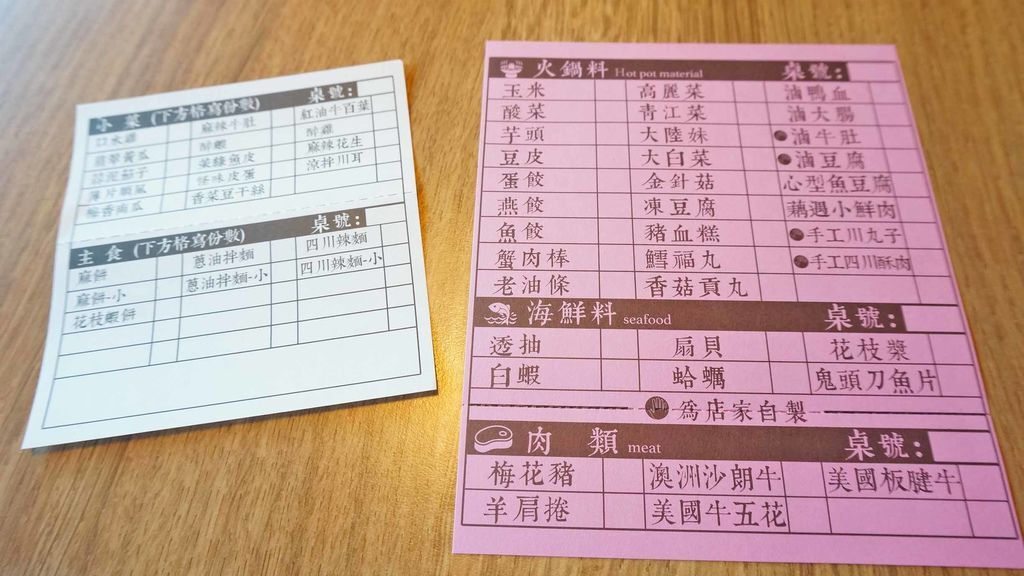 小菜 (下方格寫份數) 桌號:
口水雞 麻辣牛肚 紅油牛百葉
翡翠黃瓜 醉蝦 醉雞
茄子 魚皮 麻辣花生
薄片 怪味皮蛋 涼拌川耳
梅香南瓜 香菜豆干絲
主食 (下方格寫份數) 桌號:
麻餅 蔥油拌麵 四川辣麵
麻餅-小 蔥油拌麵-小 四川辣麵-小
花枝蝦餅
火鍋料 Hot pot material 桌號:
玉米 高麗菜 滷鴨血
酸菜 青江菜 滷大腸
芋頭 大陸妹 滷牛肚
豆皮 大白菜 滷豆腐
蛋餃 金針菇 心型魚豆腐
燕餃 凍豆腐 藕遇小鮮肉
魚餃 豬血糕 手工川丸子
蟹肉棒 鱈福丸 手工四川酥肉
老油條 香菇貢丸
海鮮料 seafood 桌號:
透抽 扇貝 花枝漿
白蝦 蛤蠣 鬼頭刀魚片
為店家自製
肉類 meat 桌號:
梅花豬 澳洲沙朗牛 美國板腱牛
羊肩捲 美國牛五花